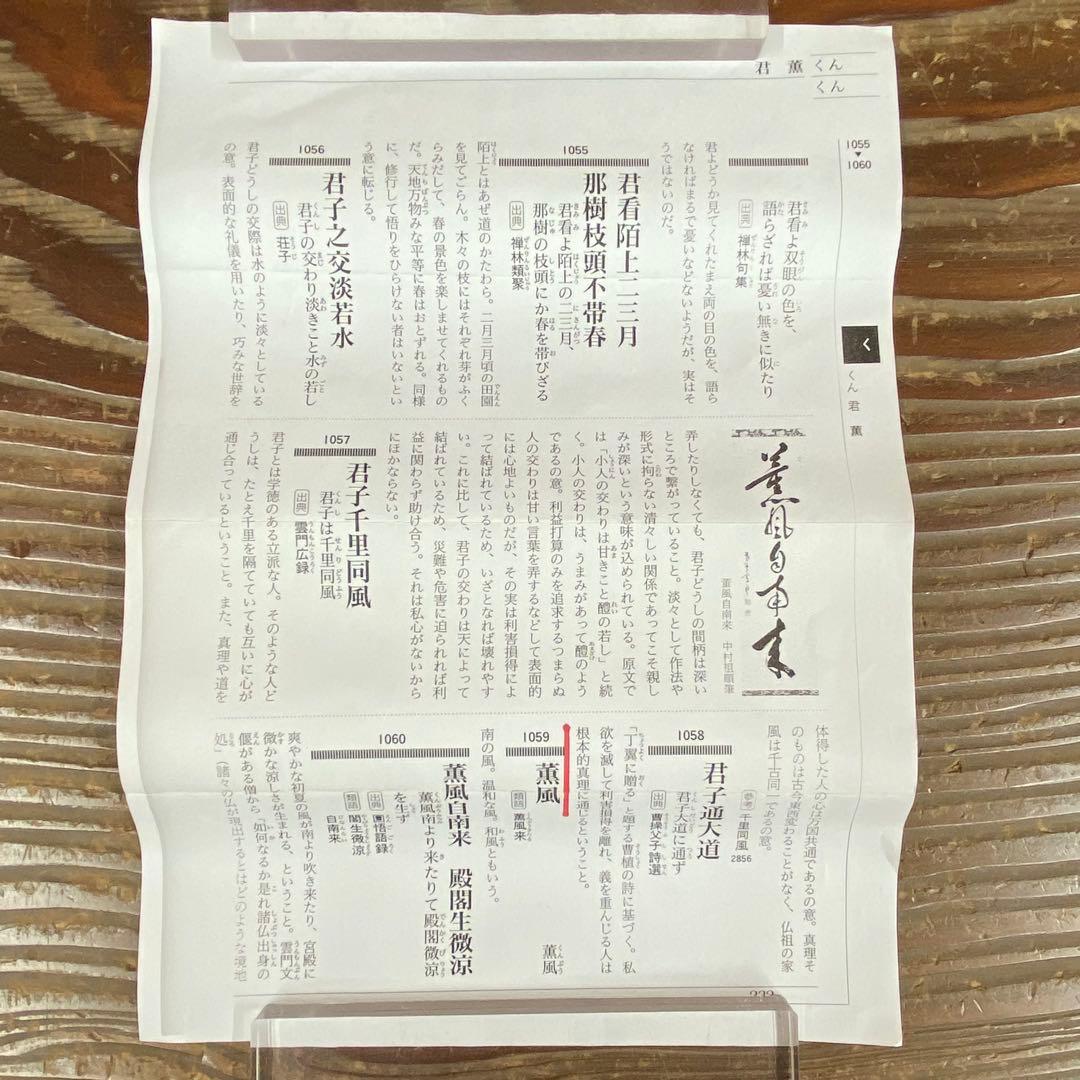 君 薫 くん
くん
1055
▼
1060
く
くん 君 薫
君看よ双眼の色を、
語らざれば憂い無きに似たり
出典 禅林句集
君よどうか見てくれたまえ両の目の色を、語ら
なければまるで憂いなどないようだが、実はそ
うではないのだ。
1055
君看陌上二三月
那樹枝頭不帯春
君看よ陌上の二三月、
那樹の枝頭にか春を帯びざる
出典 禅林類聚
陌上とはあぜ道のかたわら。二月三月頃の田園
を見てごらん。木々の枝にはそれぞれ芽がふく
らみだして、春の景色を楽しませてくれるもの
だ。天地万物みな平等に春はおとずれる。同様
に、修行して悟りをひらけない者はいないとい
う意に転じる。
1056
君子之交淡若水
君子の交わり淡きこと水の若し
出典 荘子
君子どうしの交際は水のように淡々としている
の意。表面的な礼儀を用いたり、巧みな世辞を
薫風自南来
薫風自南来 中村祖順筆
弄したりしなくても、君子どうしの間柄は深い
ところで繋がっていること。淡々として作法や
形式に拘らない清々しい関係であってこそ親し
みが深いという意味が込められている。原文で
は「小人の交わりは甘きこと醴の若し」と続
く。小人の交わりは、うまみがあって醴のよう
であるの意。利益打算のみを追求するつまらぬ
人の交わりは甘い言葉を弄するなどして表面的
には心地よいものだが、その実は利害損得によ
って結ばれているため、いざとなれば壊れやす
い。これに比して、君子の交わりは天によって
結ばれているため、災難や危害に迫られれば利
益に関わらず助け合う。それは私心がないから
にほかならない。
1057
君子千里同風
君子は千里同風
出典 雲門広録
君子とは学徳のある立派な人。そのような人ど
うしは、たとえ千里を隔てていても互いに心が
通じ合っているということ。また、真理や道を
体得した人の心は万国共通であるの意。真理そ
のものは古今東西変わることがなく、仏祖の家
風は千古同一であるの意。
参考 千里同風 2856
1058
君子通大道
君子大道に通ず
出典 曹操父子詩選
「丁翼に贈る」と題する曹植の詩に基づく。私
欲を滅して利害損得を離れ、義を重んじる人は
根本的真理に通じるということ。
1059
薫風
薫風
類語 薫風来
南の風。温和な風。和風ともいう。
1060
薫風自南来 殿閣生微涼
薫風南より来たりて殿閣微涼
を生ず
出典 圜悟語録
類語 閣生微涼
自南来
爽やかな初夏の風が南より吹き来たり、宮殿に
微かな涼しさが生まれる、ということ。雲門文
偃がある僧から「如何なるか是れ諸仏出身の
処」（諸々の仏が現出するとはどのような境地